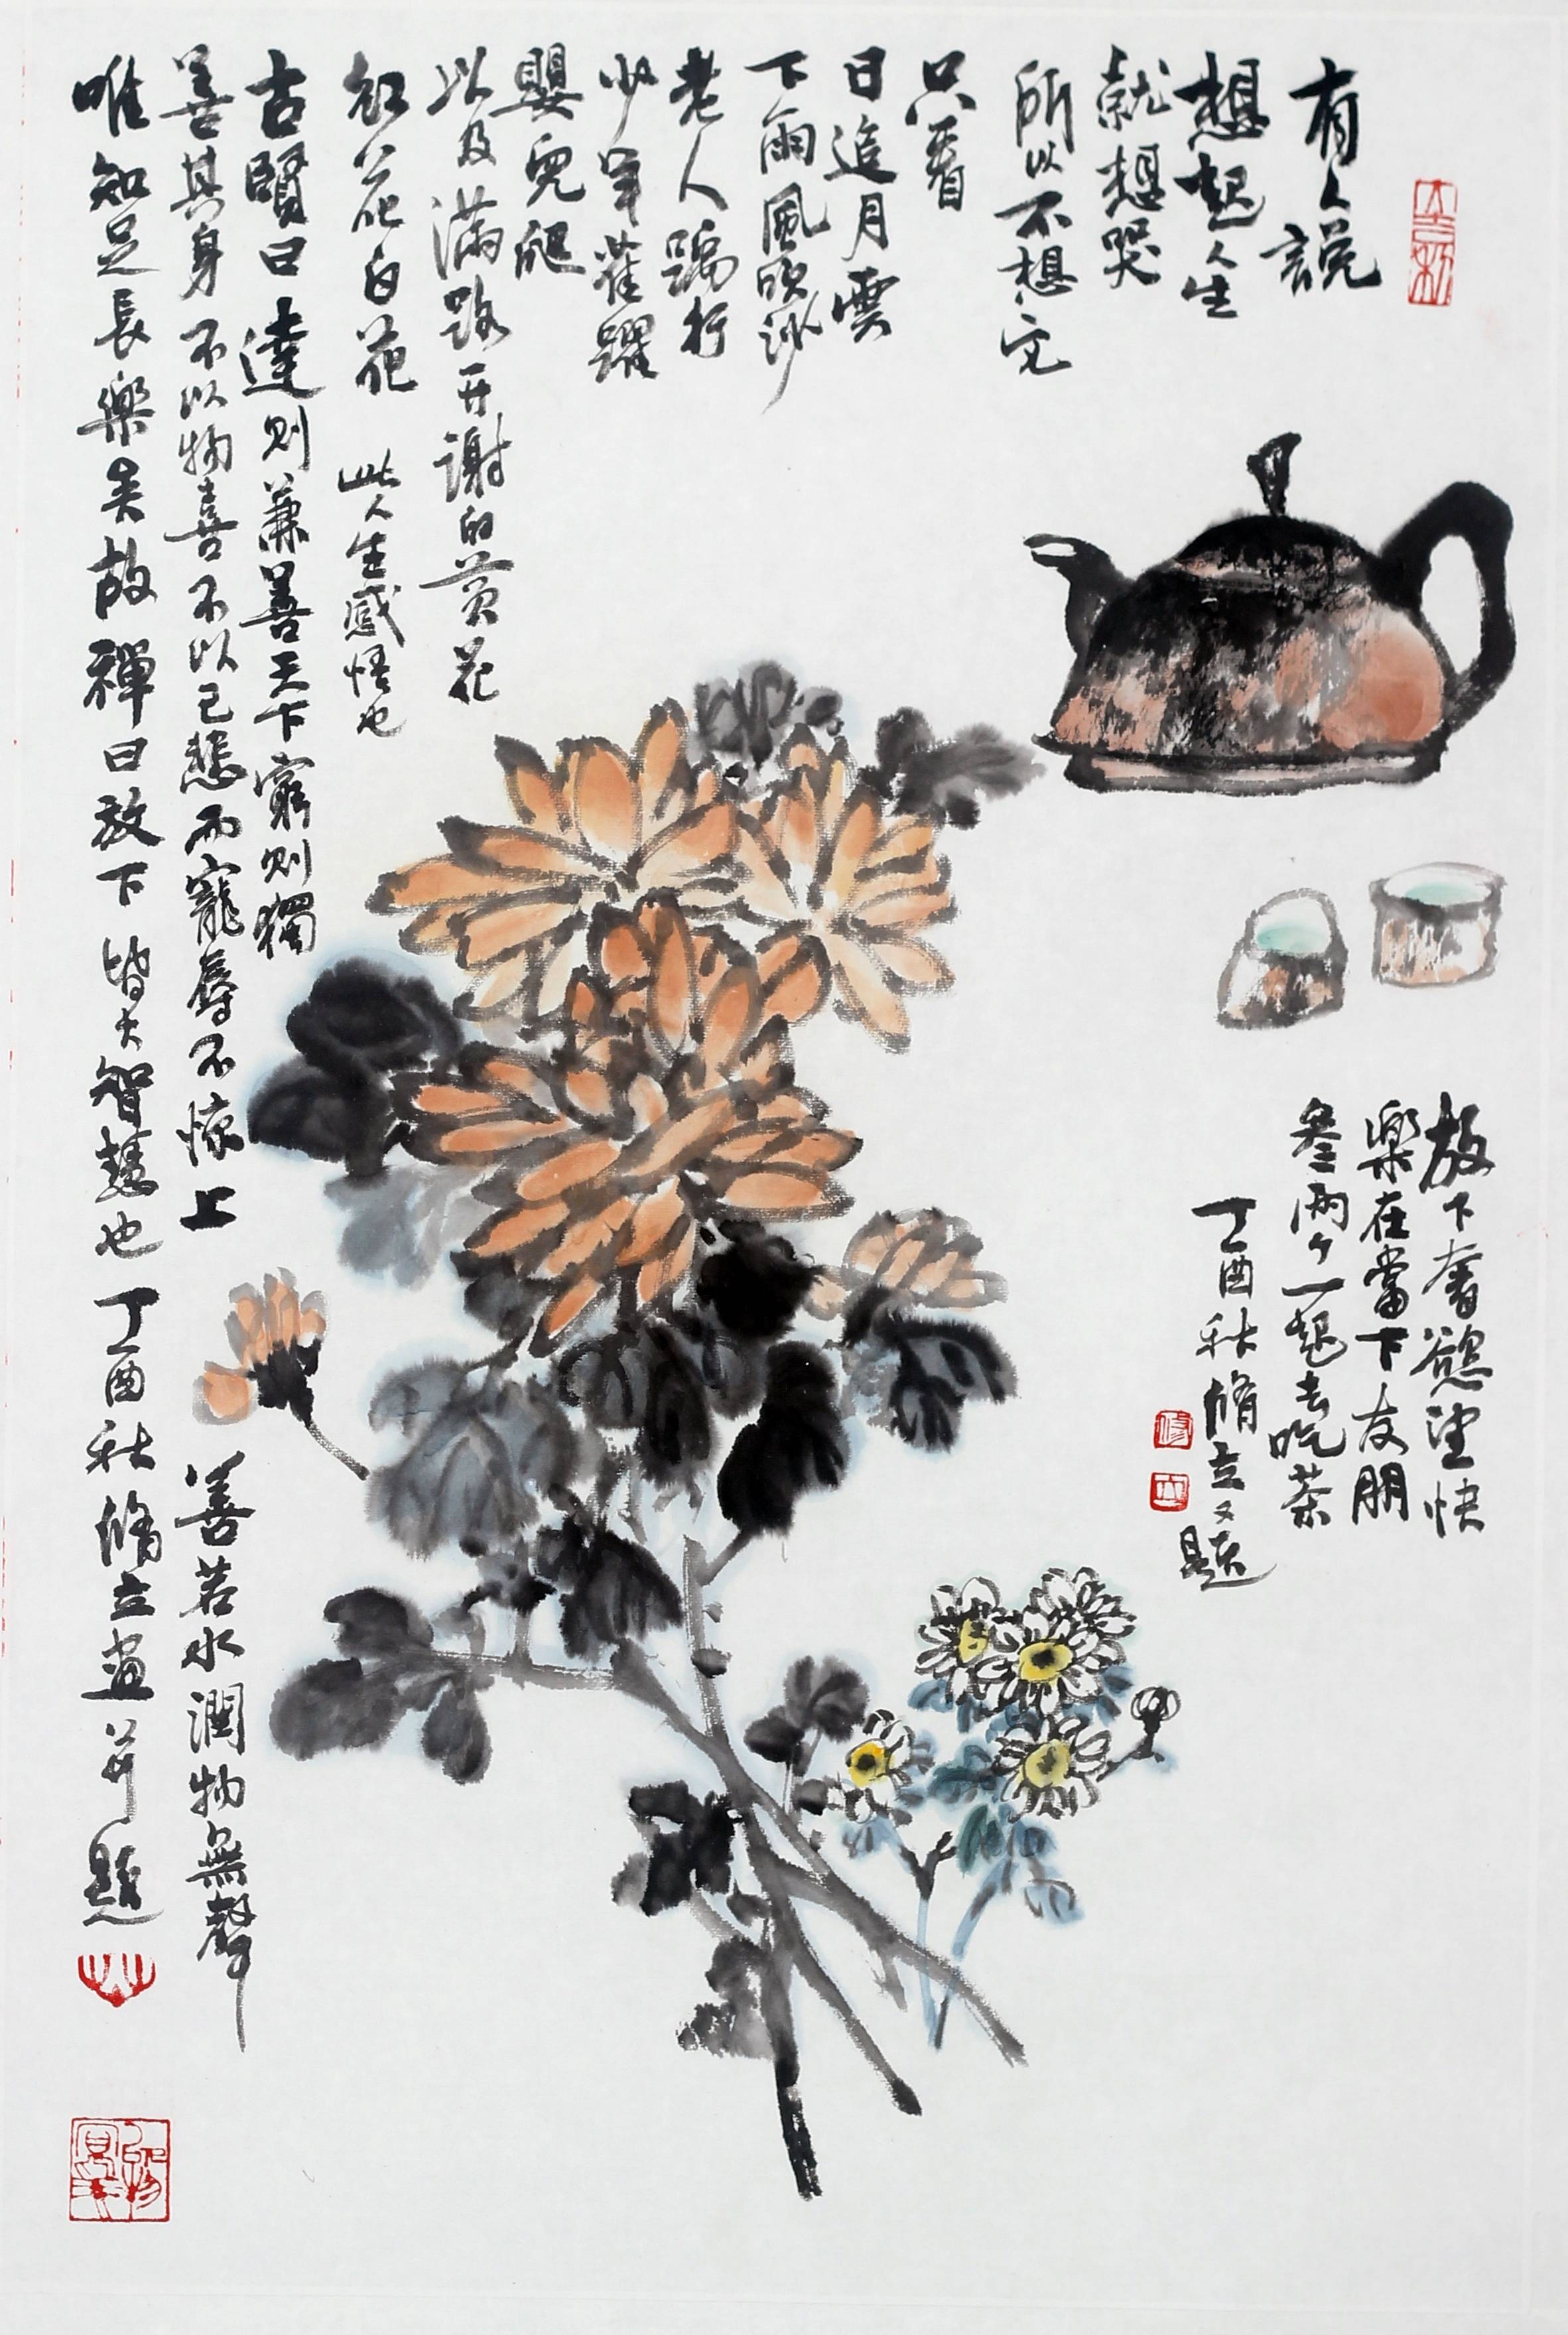 有人說
想起人生
就想哭
所以不想它
只看
日追月雲
下雨風吹沙
老人蹒行
少年雀躍
嬰兒爬
以及滿路开謝的黄花
紅花白花 此人生感悟也
古賢曰達則兼善天下窮則獨
善其身不以物喜不以己悲而寵辱不惊上
善若水潤物無聲
唯知足長樂矣故禪曰放下皆大智慧也 丁酉秋脩立畫并題
放下奢慾望快
樂在當下友朋
叁兩个一起去吃茶
丁酉秋脩立又題
修
立